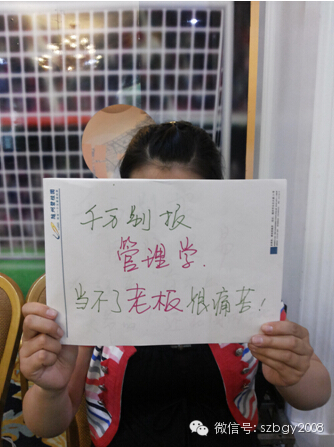 千万别报
管理学.
当不了老板很痛苦!
微信号: szbgy2008